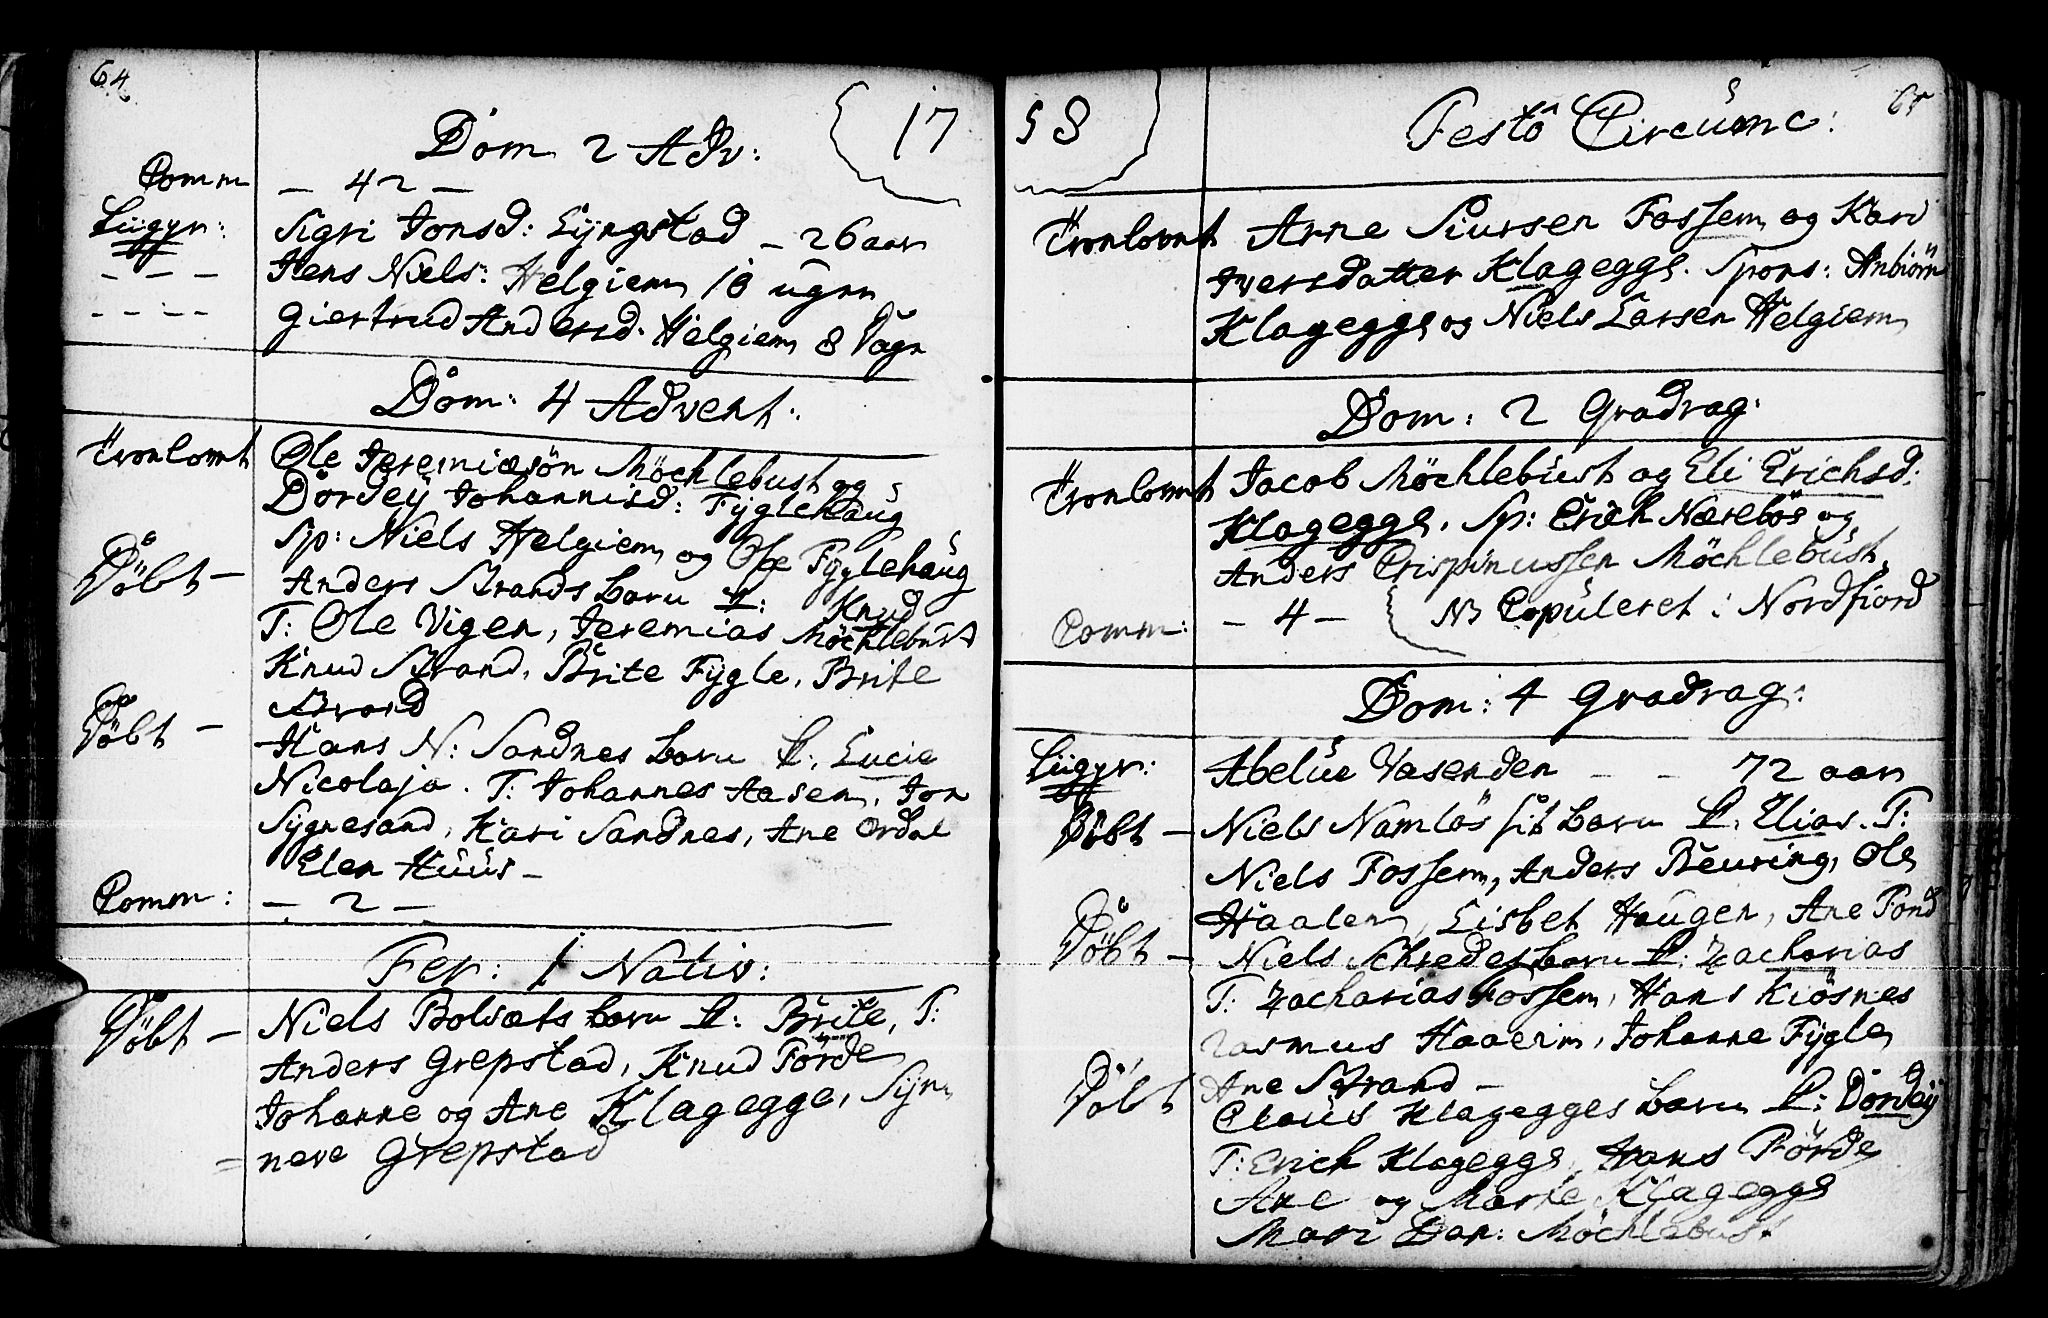 64
17
Dom 2 Adv:
Comm — 42 —
Liigpr: Sigri Jonsd: Lyngstad — 26 aar
— — — Jens Niels: Helgiem 18 ugrn
— — — Giertrud Andersd. Helgiem 8 Dagr
Dom: 4 Advent:
Trorlovet Ole Jeremiæsön Möchlebust og
Dordey Johannisd: Fyglehaug
Sp: Niels Helgiem og Ole Fyglehaug
Döbt — Anders Strands barn N: Knud
T: Ole Vigen, Jeremias Möchlebust
Knud Strand, Brite Fygle, Brite
Strand
Döbt — Hans N: Sandnes barn N: Lucie
Nicolaja. T: Johannes Aasen, Jon
Sygnesand, Kari Sandnes, Ane Ordal
Elen Huus —
Comm: — 2 —
Fer: 1 Nativ:
Döbt — Niels Bolsæts barn N: Brite, T:
Anders Grepstad, Knud Förde
Johanne og Ane Klagegge, Syn
= neve Grepstad
58
65
Festo Circumc:
Trorlovet Arne Siursen Fossem og Kari
Iversdatter Klagegge. Spons: Anbiörn
Klagegge og Niels Larsen Helgiem
Dom: 2 Gradrag:
Trorlovet Jacob Möchlebust og Eli Erichsd:
Klagegge. Sp: Erich Nærebös og
Anders Crispinussen Möchlebust
Comm: — 4 — NB Copuleret i Nordfiord
Dom: 4 Gradrag:
Liigpr: Abelue Vasenden — — 72 aar
Döbt — Niels Namlös sit barn N. Elias. T:
Niels Fossem, Anders Beuring, Ole
Haalem, Lisbet Haugen, Ane Fond
Döbt — Niels Schredes barn N: Zacharias
T: Zacharias Fossem, Hans Kiösnes
Rasmus Haaeim, Johanne Fygle
Ane Strand —
Döbt Claus Klagegges barn N: Dordey
T: Erich Klagegge, Hans Förde
Ane og Marte Klagegge
Mari Dan: Möchlebust